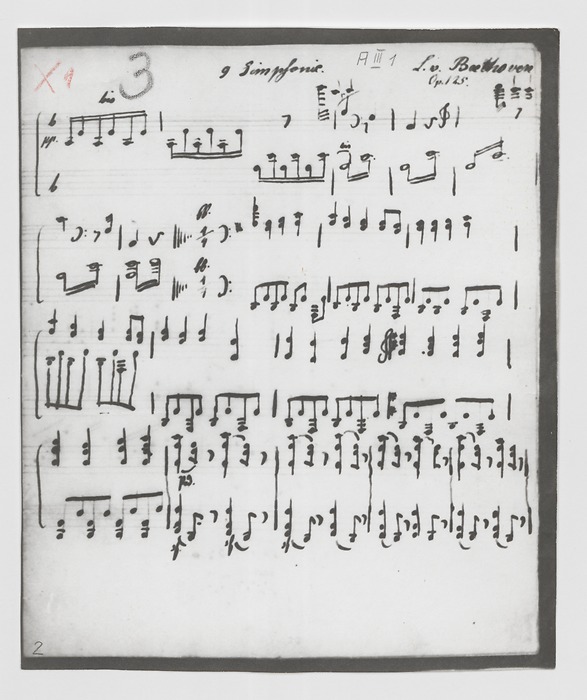 X 9 3 9 Simphonie. A III 1 L. v. Beethoven
Op. 125.
pp.
2